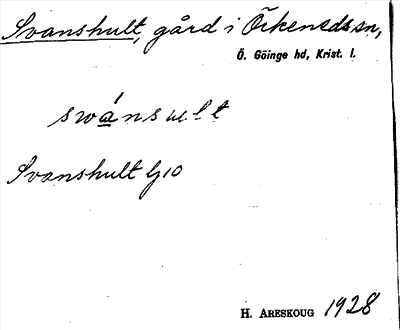 Svanshult, gård i Örkeneds sn,
Ö. Göinge hd, Krist. l.
swánsult
Svanshult GJ10
H. ARESKOUG 1928